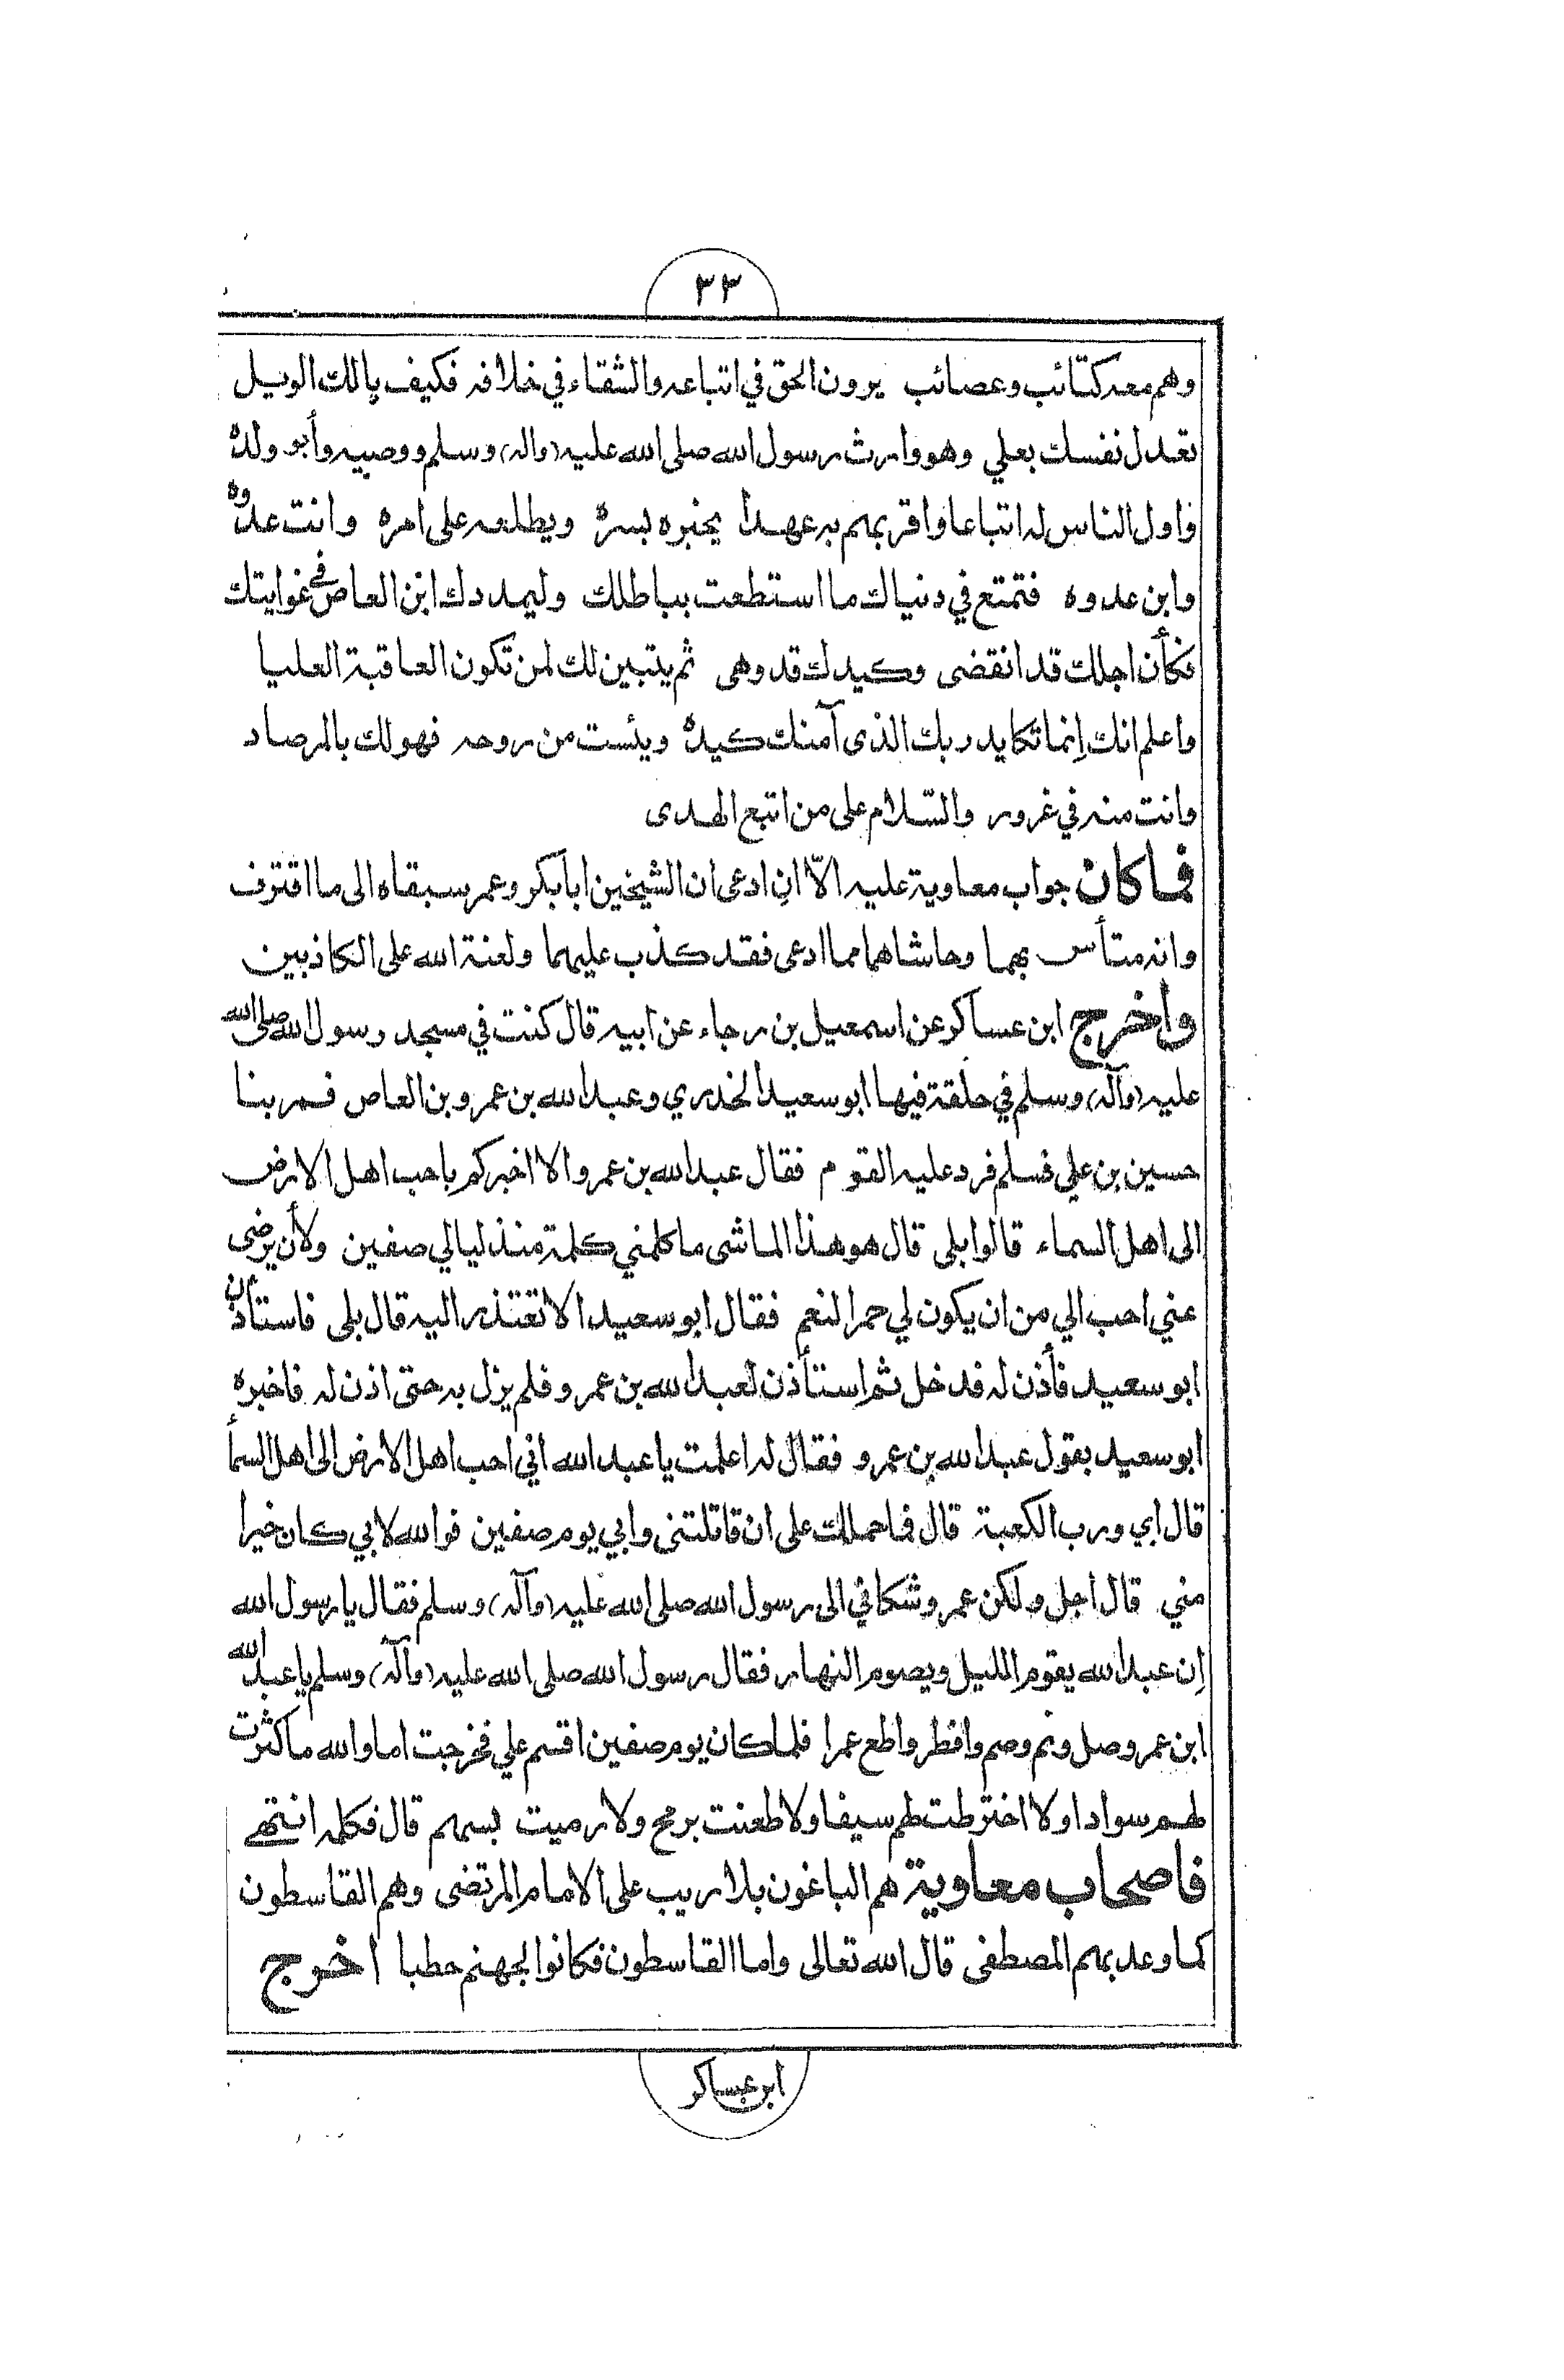 ٣٣
وهم معه كتائب وعصائب يرون الحق في اتباعه والشقاء في خلافه فكيف يالك الويل
تعدل نفسك بعلي وهو وارث رسول الله صلى الله عليه (واله) وسلم ووصييه وأبو ولده
واول الناس له اتباعا واقربهم به عهدا يخبره بسره ويطلعه على امره وانت عدوه
وابن عدوه فتمتع في دنياك ما استطعت بباطلك وليمددك ابن العاص في غوايتك
فكأن اجلك قد انقضى وكيدك قد وهى ثم يتبين لك لمن تكون العاقبة العليا
واعلم انك إنما تكايد ربك الذى آمنك كيده ويئست من روحه فهو لك بالمرصاد
وانت منه في غرور والسّلام على من اتبع الهدى
فما كان جواب معاوية عليه الاّ ان ادعى ان الشيخين ابا بكر وعمر سبقاه الى ما اقترف
وانه متأس بهما وحاشاهما مما ادعى فقد كذب عليهما ولعنة الله على الكاذبين
وأخرج ابن عساكر عن اسمعيل بن رجاء عن ابيه قال كنت في مسجد رسول الله صلى الله
عليه (وآله) وسلم في حلقة فيها ابو سعيد الخدري وعبد الله بن عمرو بن العاص فمر بنا
حسين بن علي فسلم فرد عليه القوم فقال عبد الله بن عمرو الا اخبركم باحب اهل الارض
الى اهل السماء قالوا بلى قال هو هذا الماشى ما كلمني كلمة منذ ليالي صفين ولأن يرضى
عني احب الي من ان يكون لي حمر النعم فقال ابو سعيد الا تعتذر اليه قال بلى فاستأذن
ابو سعيد فأذن له فدخل ثم استأذن لعبد الله بن عمرو فلم يزل به حتى اذن له فاخبره
ابو سعيد بقول عبد الله بن عمرو فقال له اعلمت يا عبد الله اني احب اهل الارض إلى اهل السمأ
قال إي ورب الكعبة قال فما حملك على ان قاتلتنى وابي يوم صفين فوالله لابي كان خيرا
مني قال اجل ولكن عمرو شكاني الى رسول الله صلى الله عليه (وآله) وسلم فقال يا رسول الله
إن عبد الله يقوم الليل ويصوم النهار فقال رسول الله صلى الله عليه (وآله) وسلم يا عبد الله
ابن عمرو صل ونم وصم وافطر واطع عمرا فلما كان يوم صفين اقسم علي فخرجت اما والله ما كثرت
لهم سوادا ولا اخترطت لهم سيفا ولا طعنت برمح ولا رميت بسهم قال فكلمه انتهى
فاصحاب معاوية هم الباغون بلا ريب على الامام المرتضى وهم القاسطون
كما وعد بهم المصطفى قال الله تعالى واما القاسطون فكانوا لجهنم حطبا اخرج
ابن عساكر